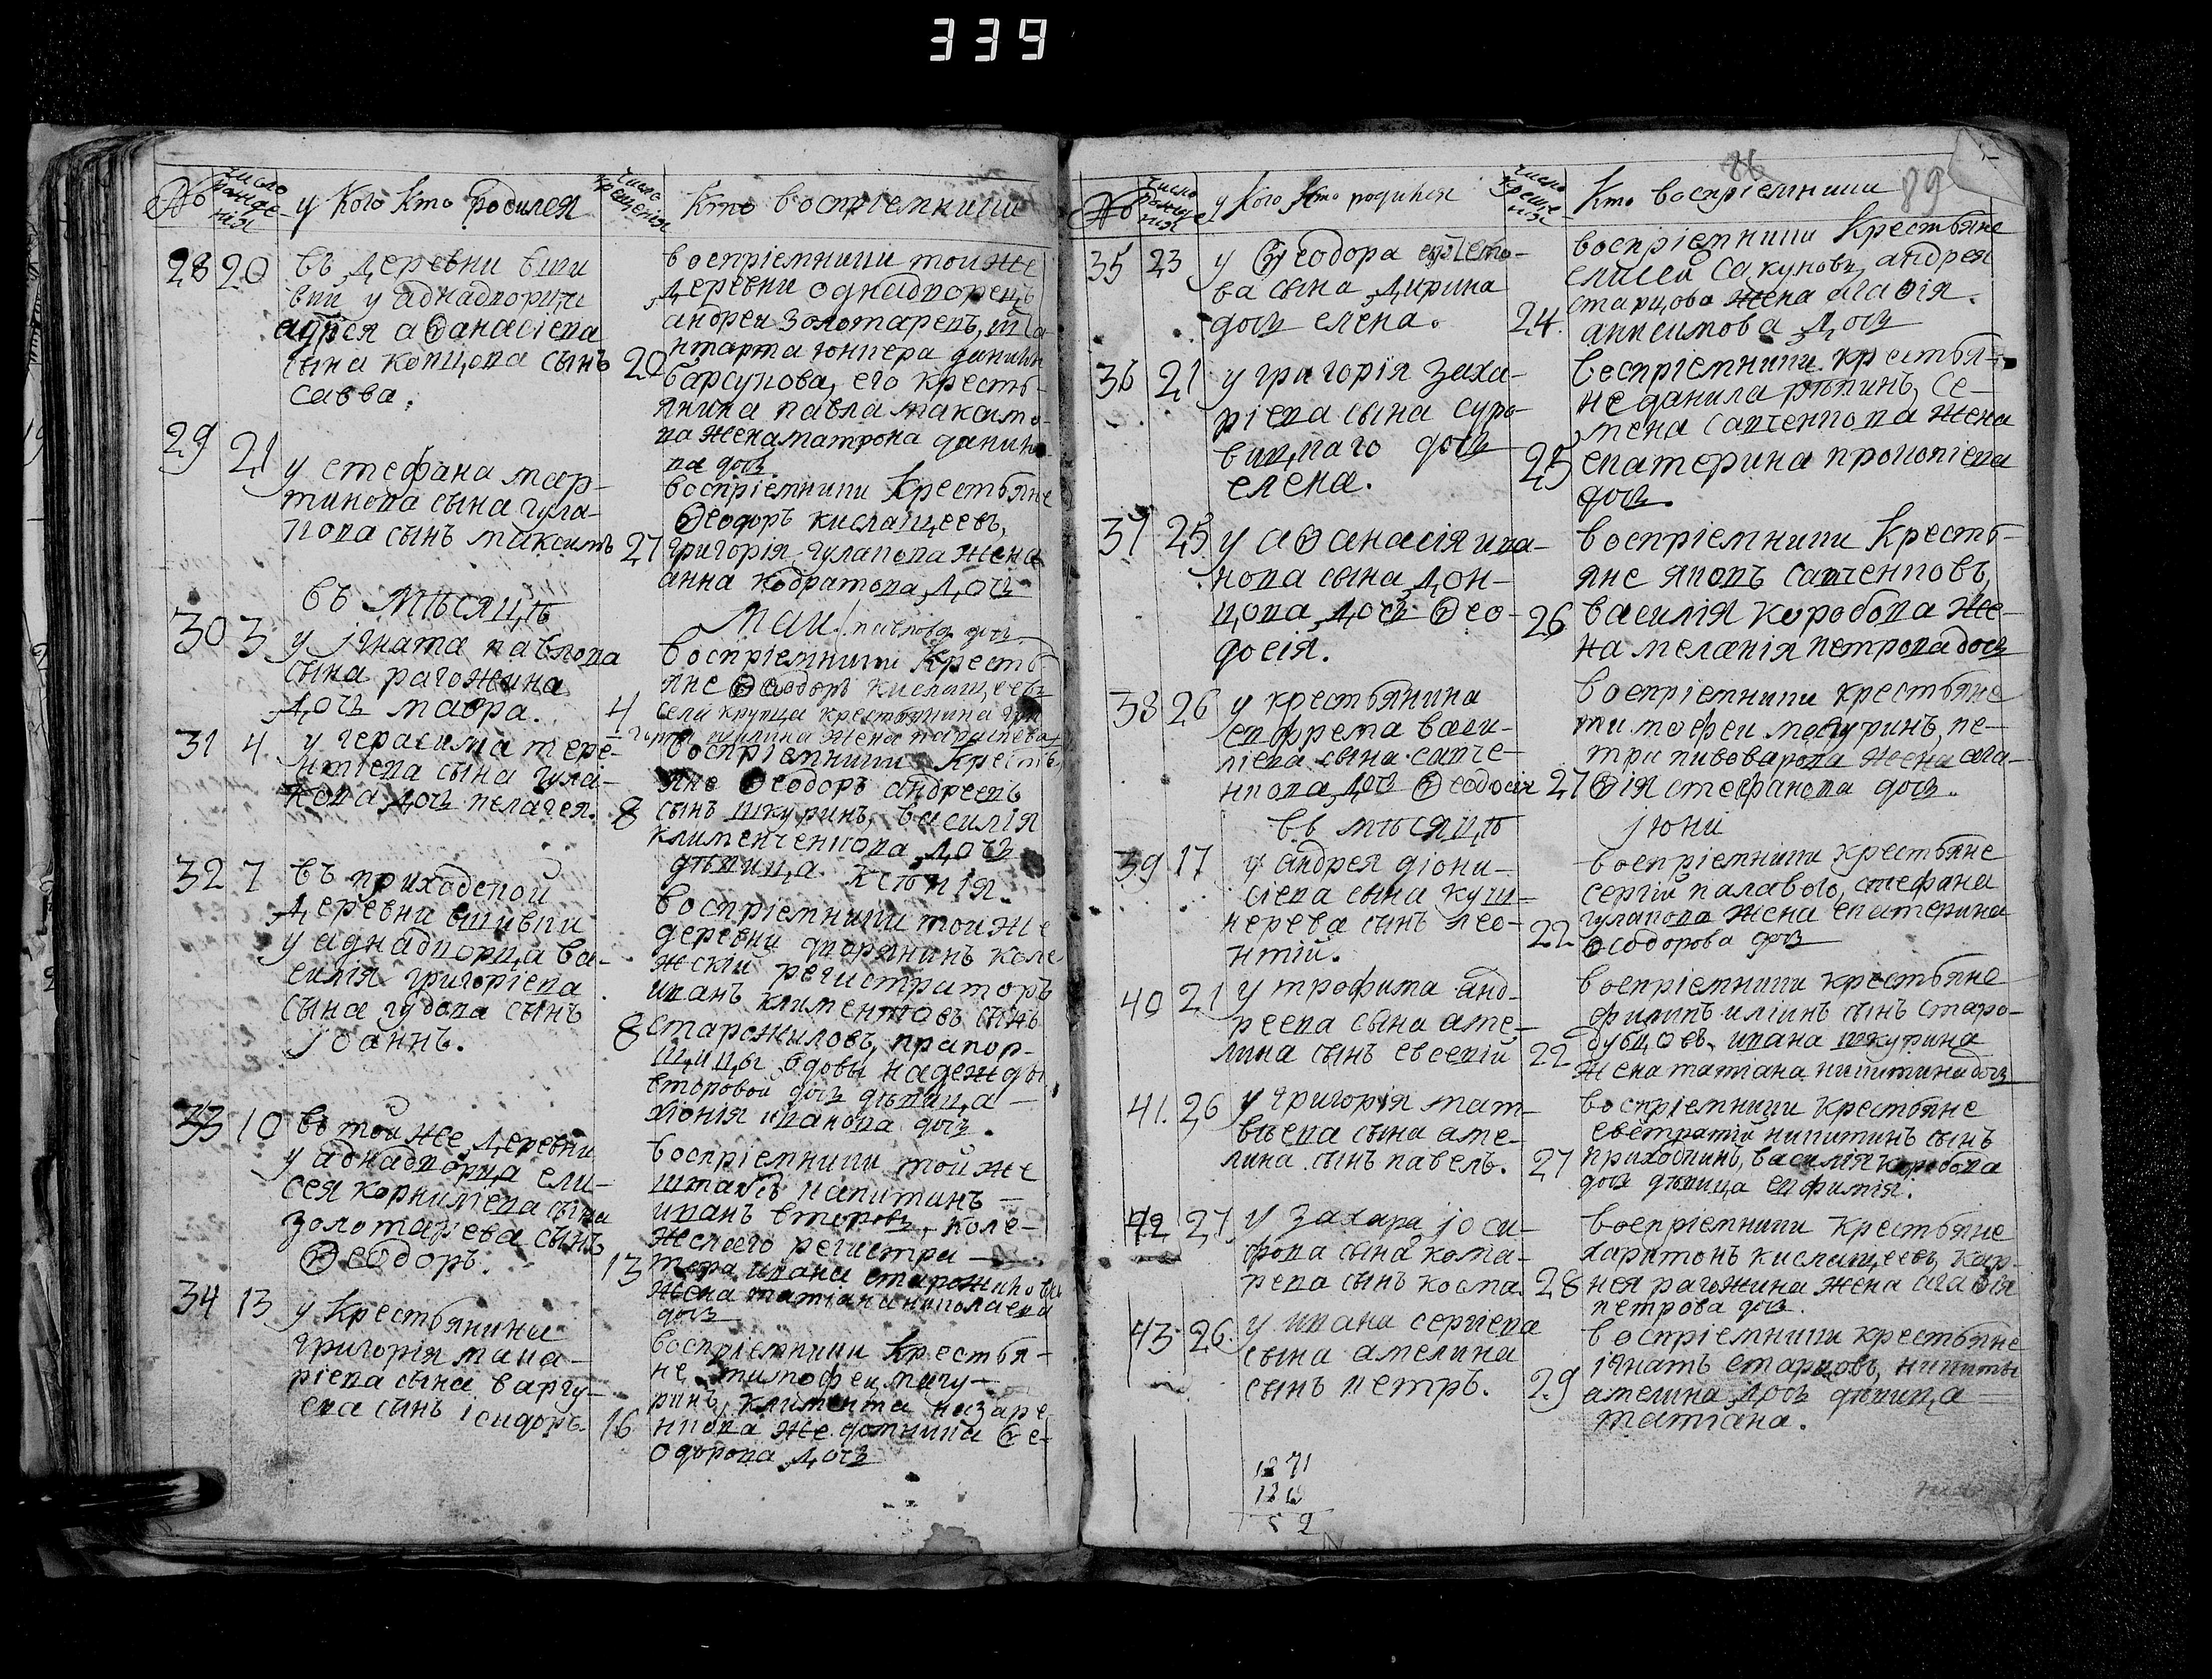 339
№ число рожде-нія у кого кто родился число крещенія кто воспріемники
28 20 въ деревни вши
вки у аднадворца
андрея аѳанасіева
сына копцова сынъ 20
савва.
воспріемники тойже
деревни однадворецъ
андреи золотаревъ,
юнкера данилы
барсукова, его кресть-
янина павла максимо-
ва жена матрона данило-
ва дочь.
29 21 у стефана мар-
тинова сына гула-
кова сынъ максимъ 27
воспріемники крестьяне
ѳеодоръ кислащеевъ,
григорія гулакова жена
анна кодратова дочь
въ мѣсяцѣ
маи
30 3 у игната павлова
сына рагожина
дочь мавра. 4
павлова дочь
воспріемники кресть
яне ѳеодоръ кислащеевъ
села крупца крестьянина гри
жена параскева
31 4 у герасима тере-
нтіева сына гула-
кова дочь пелагея. 8
воспріемники кресть
яне ѳеодоръ андреевъ
сынъ шкуринъ, василія
клименченкова дочь
дѣвица ксѣнія.
32 7 въ приходской
деревни вшивки
у аднадворца ва-
силія григоріева
сына гудова сынъ
іоаннъ. 8
воспріемники тойже
деревни дворянинъ коле
жскіи регистраторъ
иванъ климентовъ сынъ
старожиловъ, прапор-
щицы вдовы надежды
второвой дочь дѣвица
хіонія иванова дочь.
33 10 въ той же деревни
у аднадворца ели-
сея корниліева сына
золотарева сынъ
ѳеодоръ. 13
воспріемники той же
штабъ капитанъ
иванъ второвъ, коле-
жскаго регистра-
тора ивана старожилова
жена татіана николаева
дочь
34 13 у крестьянина
григорія мака-
ріева сына варгу-
ева сынъ ісидоръ. 16
воспріемники крестья-
не тимофеи мачу-
ринъ, климента назаре
нкова же. фотинія ѳе-
одорова дочь
86 89
№ число рожде нія у кого кто родился число креще нія кто воспріемники
35 23 у ѳеодора
ва сына дирина
дочь елена. 24.
воспріемники крестьяне
елисей сакуновъ, андрея
старцова жена агаѳія.
анисимова дочь
36 21 у григорія заха-
ріева сына суро-
вицкаго дочь
елена. 25
воспріемники крестья-
не данила рѣпинъ, се-
мена савченкова жена
екатерина прокопіева
дочь.
37 25 у аѳанасія ива-
нова сына дон-
цова дочь ѳео-
досія. 26
воспріемники кресть-
яне яковъ савченковъ,
василія коробова же-
на меланія петрова дочь
38 26 у крестьянина
ефрема васи-
ліева сына савче-
нкова дочь ѳеодосія 27
воспріемники крестьяне
тимофеи мачуринъ, пе-
три пивоварова жена ага-
ѳія стефанова дочь.
въ мѣсяцѣ
іюни
39 17 у андрея діони-
сіева сына куш-
нерева сынъ лео-
нтій. 22
воспріемники крестьяне
сергіи палавого, стефана
гулакова жена екатерина
ѳеодорова дочь
40 21 у трофима анд-
реева сына аме-
лина сынъ евсевій 22
воспріемники крестьяне
филипъ иліинъ сынъ старо-
дубцовъ, ивана шкурина
жена татіана никитина дочь
41. 26 у григорія мат-
вѣева сына аме-
лина сынъ павелъ. 27
воспріемники крестьяне
евстратій никитинъ сынъ
приходкинъ, василія коробова
дочь дѣвица евфимія.
42 27 у захара іоси-
фова сына кома-
рева сынъ косма. 28
воспріемники крестьяне
харитонъ кислащеевъ, кар-
нея рагожина жена агаѳія
петрова дочь.
43. 26. у ивана сергіева
сына амелина
сынъ петръ. 29
воспріемники крестьяне
игнатъ старцовъ, никиты
амелина дочь дѣвица
татіана.